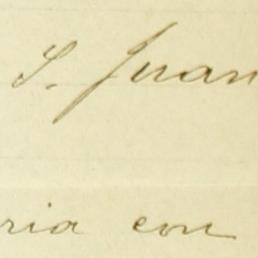 S. Juan
ria con